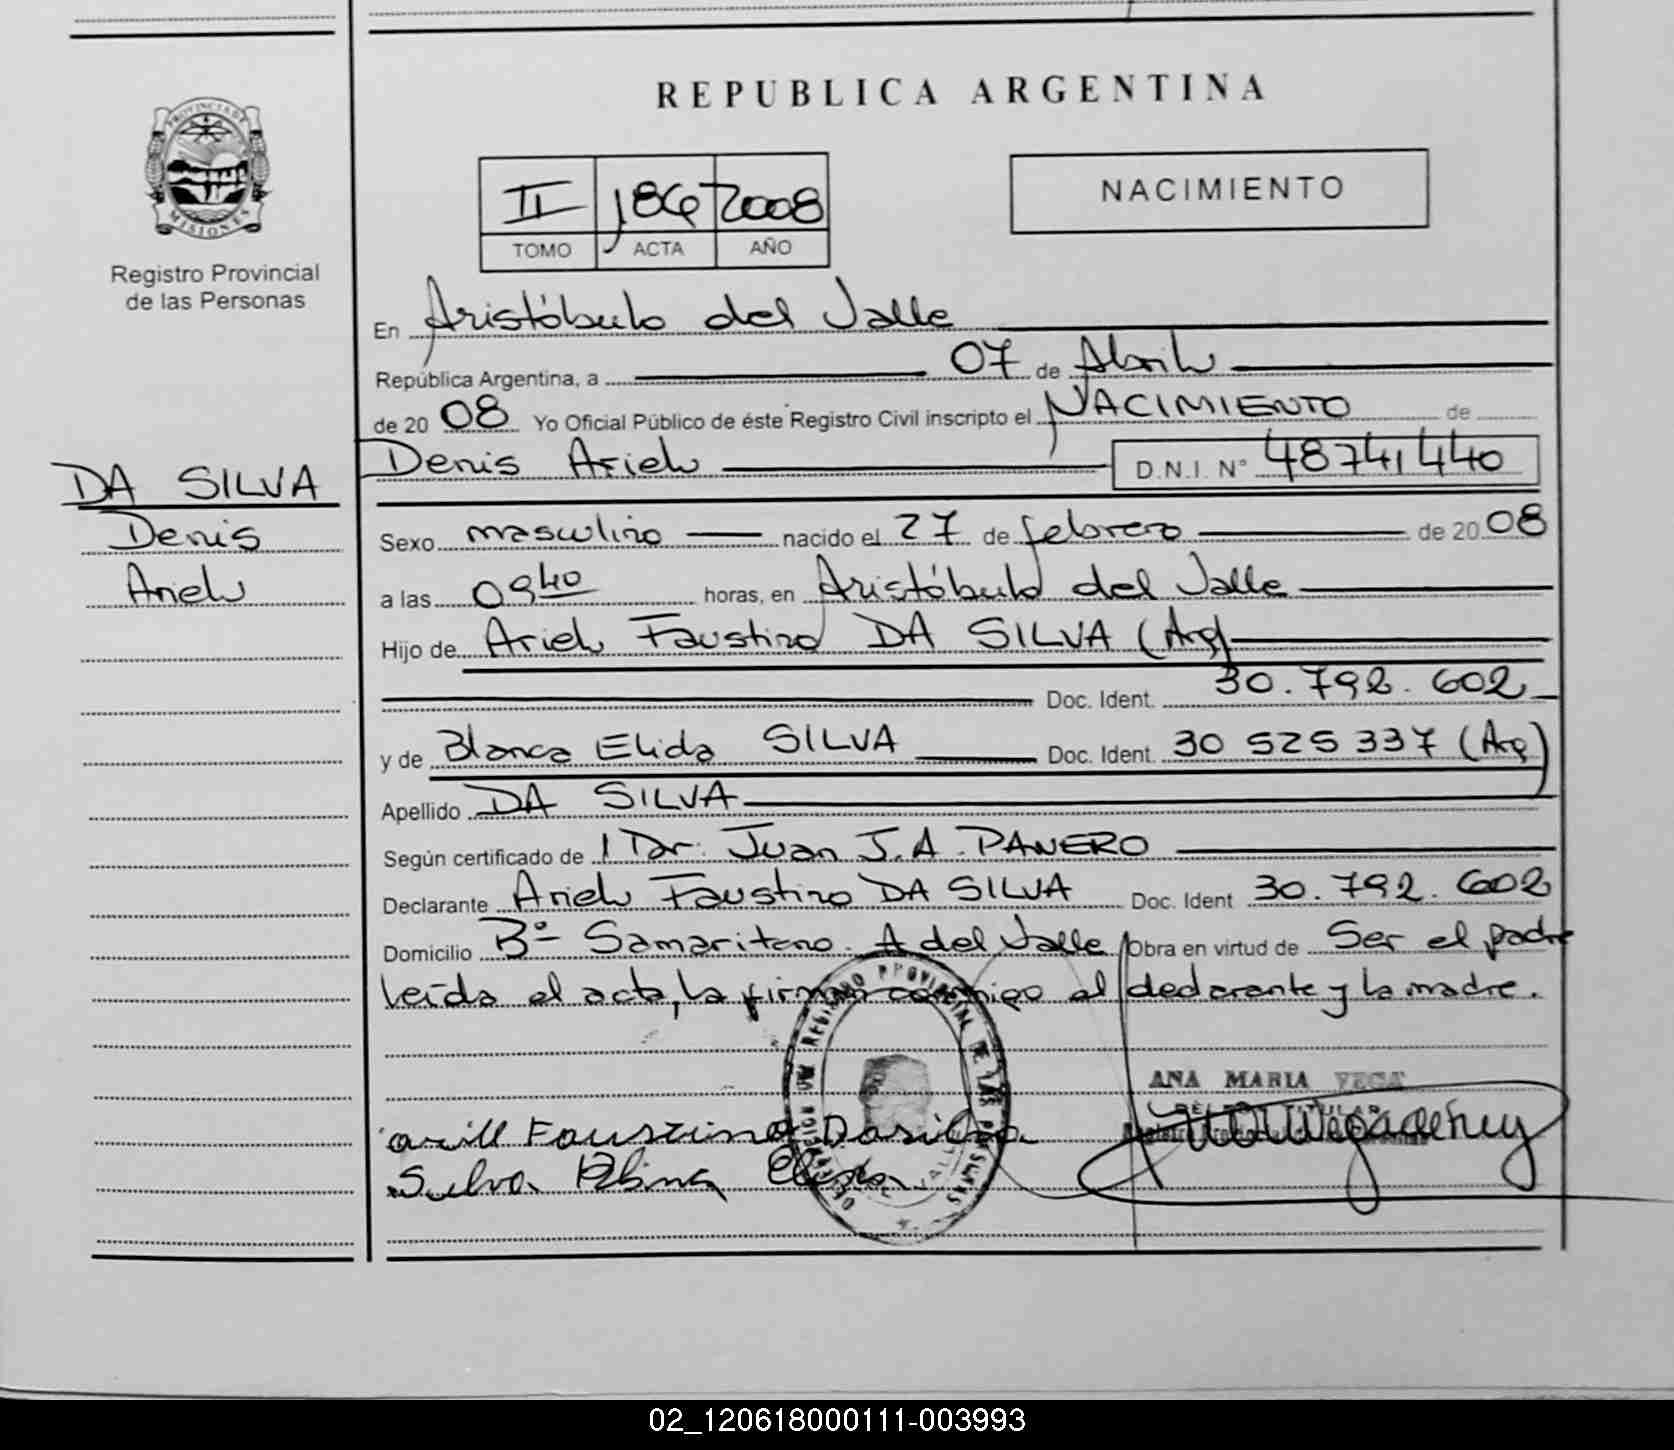 REPUBLICA ARGENTINA
PROVINCIA DE MISIONES
Registro Provincial
de las Personas
II 186 2008
TOMO ACTA AÑO
NACIMIENTO
En Aristóbulo del Valle
República Argentina, a 07 de Abril
de 20 08 Yo Oficial Público de éste Registro Civil inscripto el NACIMIENTO de
Denis Ariel D.N.I. N° 48741440
DA SILVA
Denis
Ariel
Sexo masculino nacido el 27 de febrero de 20 08
a las 09 40 horas, en Aristóbulo del Valle
Hijo de Ariel Faustino DA SILVA (Arg)
Doc. Ident. 30.792.602
y de Blanca Elida SILVA Doc. Ident. 30 525 337 (Arg)
Apellido DA SILVA
Según certificado de Dr. Juan J.A. PANERO
Declarante Ariel Faustino DA SILVA Doc. Ident 30.792.602
Domicilio B° Samaritano. A del Valle Obra en virtud de Ser el padre
leída el acta, la firman conmigo el declarante y la madre.
REGISTRO PROVINCIAL DE LAS PERSONAS
ANA MARIA VEGA
Faustino Dasilva
Silva
02_120618000111-003993